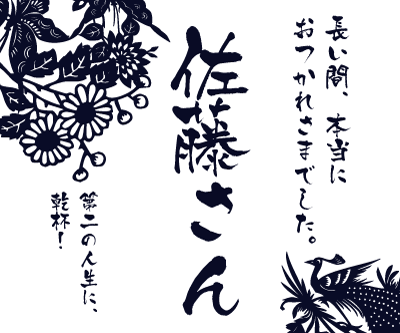 長い間、本当に
おつかれさまでした。
佐藤さん
第二の人生に、
乾杯！